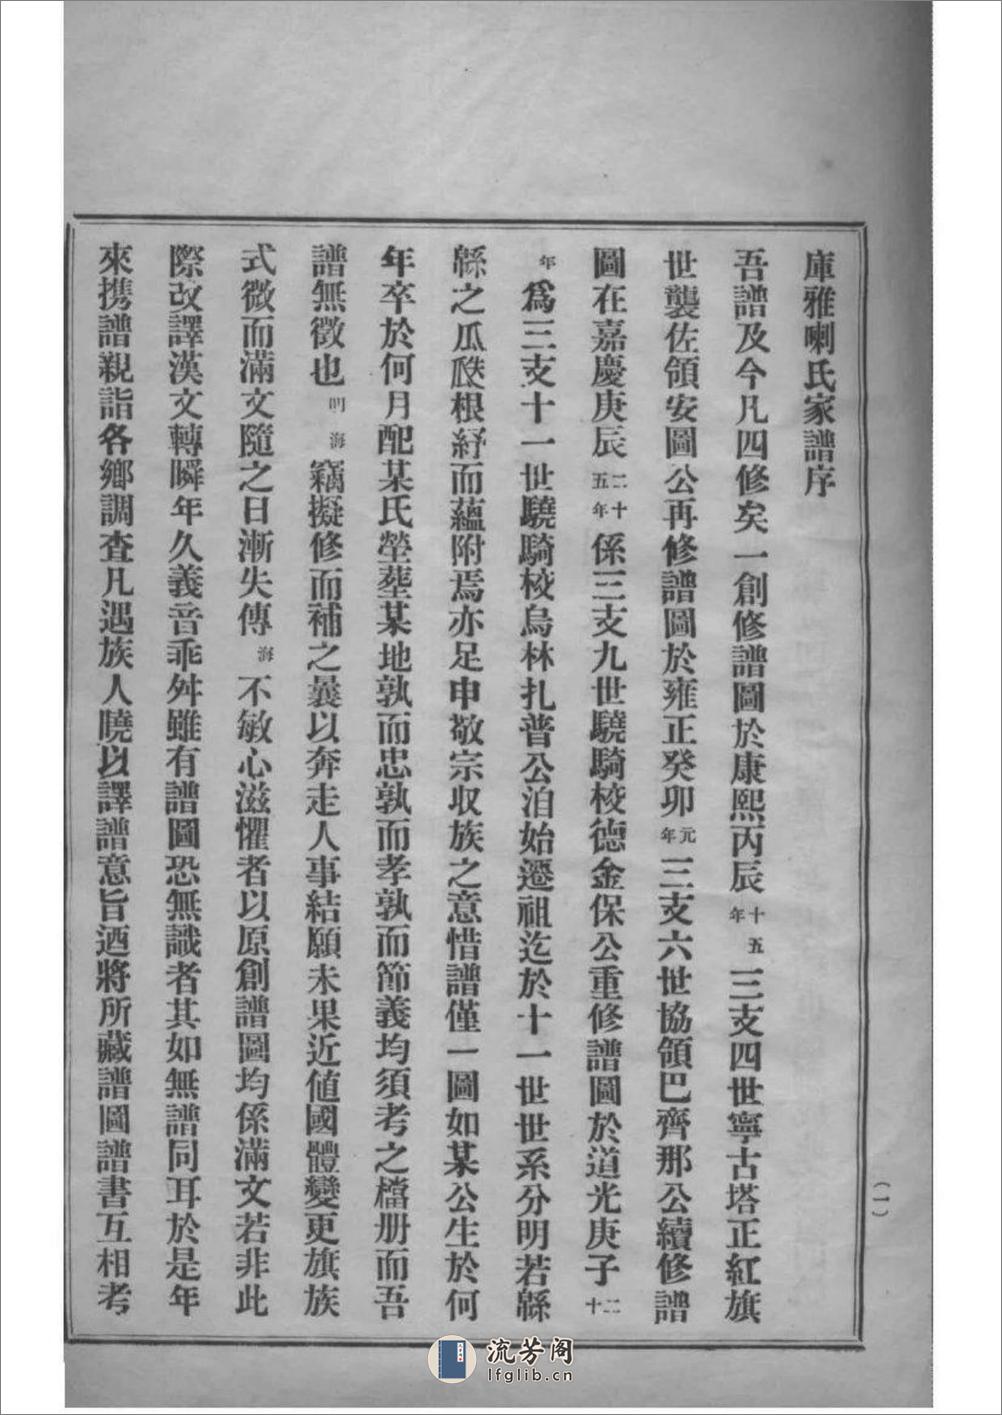 庫雅喇氏家譜序
吾譜及今凡四修矣一創修譜圖於康熙丙辰十五年三支四世寧古塔正紅旗
世襲佐領安圖公再修譜圖於雍正癸卯元年三支六世協領巴齊那公續修譜
圖在嘉慶庚辰二十五年係三支九世驍騎校德金保公重修譜圖於道光庚子二十
年為三支十一世驍騎校烏林扎普公洎始遷祖迄於十一世世系分明若緜
緜之瓜瓞根紓而蘊附焉亦足申敬宗收族之意惜譜僅一圖如某公生於何
年卒於何月配某氏塋塟某地孰而忠孰而孝孰而節義均須考之檔册而吾
譜無徵也明海竊擬修而補之曩以奔走人事結願未果近値國體變更旗族
式微而滿文隨之日漸失傳海不敏心滋懼者以原創譜圖均係滿文若非此
際改譯漢文轉瞬年久義音乖舛雖有譜圖恐無識者其如無譜同耳於是年
來携譜親詣各鄉調查凡遇族人曉以譯譜意旨迺將所藏譜圖譜書互相考
(一)
流芳阁
lfglib.cn